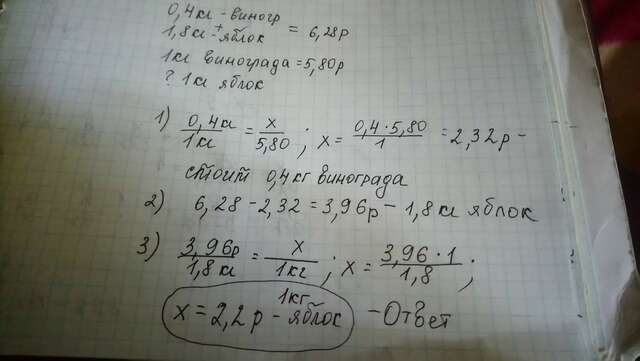 0,4кг - виногр
+
1,8кг - яблок = 6,28р
1кг винограда = 5,80р
? 1кг яблок
1) 0,4кг/1кг = x/5,80 ; x = 0,4·5,80/1 = 2,32р -
стоит 0,4кг винограда
2) 6,28 - 2,32 = 3,96р - 1,8кг яблок
3) 3,96р/1,8кг = x/1кг ; x = 3,96·1/1,8 ;
x = 2,2р - 1кг яблок - Ответ